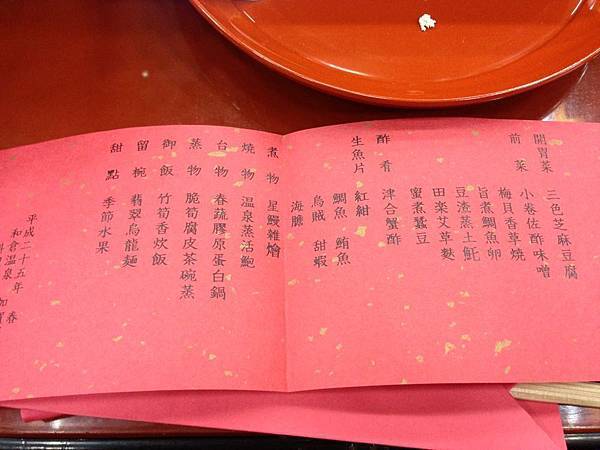 開胃菜 三色芝麻豆腐
前菜 小卷佐酢味噌
梅貝香草燒
旨煮鯛魚卵
豆渣蒸土魠
田楽艾草麩
蜜煮蠶豆
酢肴 津合蟹酢
生魚片 紅紺
鯛魚 鮪魚
烏賊 甜蝦
海膽
煮物 星鰻雜燴
燒物 溫泉蒸活鮑
台物 春蔬膠原蛋白鍋
蒸物 脆筍腐皮茶碗蒸
御飯 竹筍香炊飯
留椀 翡翠烏龍麵
甜點 季節水果
平成二十五年 春
和倉溫泉 加賀